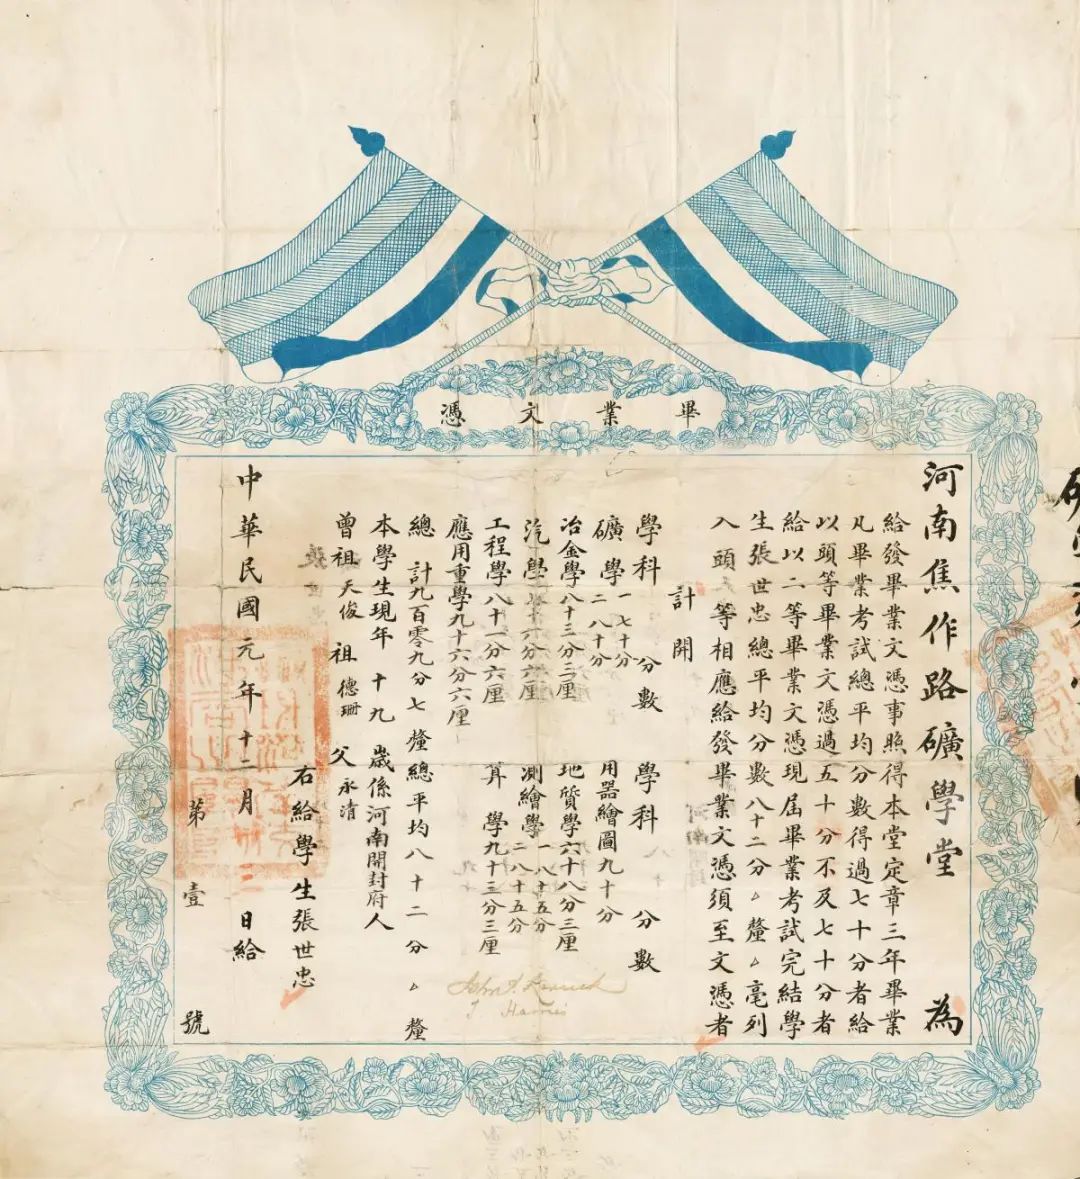 畢業文憑
河南焦作路礦學堂　為
給發畢業文憑事照得本堂定章三年畢業
凡畢業考試總平均分數得過七十分者給
以頭等畢業文憑過五十分不及七十分者
給以二等畢業文憑現屆畢業考試完結學
生張世忠總平均分數八十二分△釐△毫列
入頭等相應給發畢業文憑須至文憑者
計開
學科　分數　學科　分數
礦學 一 七十分 二 八十分　用器繪圖九十分
冶金學八十三分三厘　地質學六十八分三厘
汽學七十六分六厘　測繪學 一 八十五分 二 八十五分
工程學八十一分六厘　算學九十三分三厘
應用重學九十六分六厘
總計九百零九分七釐總平均八十二分△釐
本學生現年十九歲係河南開封府人
曾祖天俊　祖德珊　父永清
右給學生張世忠
中華民國元年十二月　三　日給
第壹號
Harris